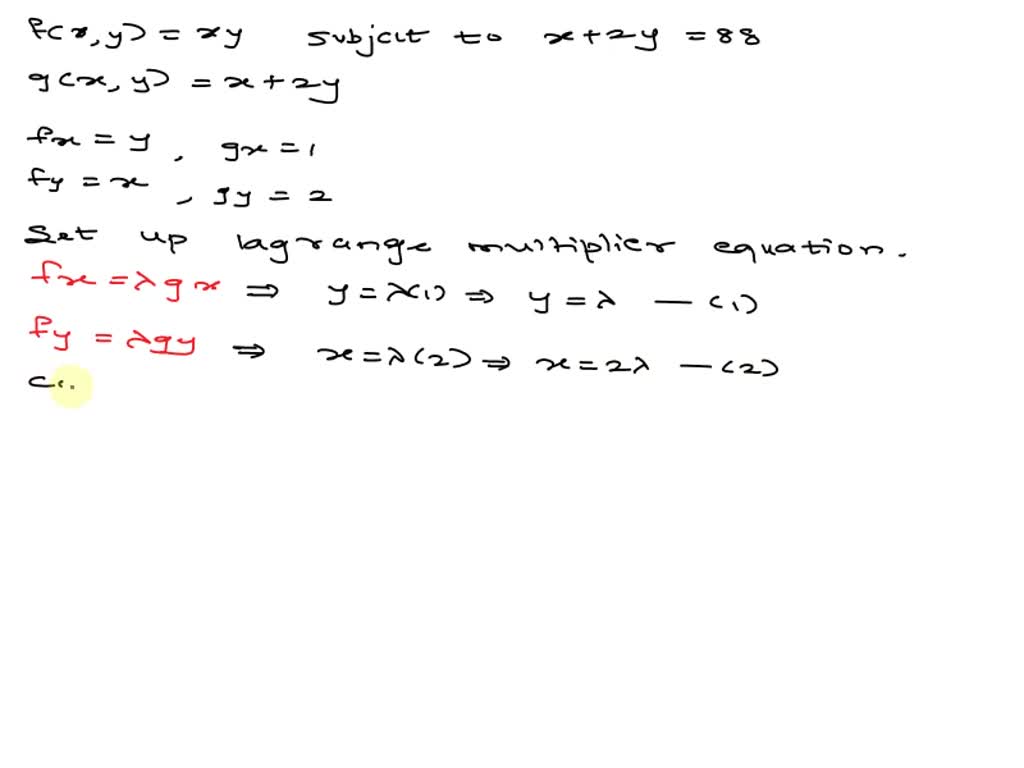 f(x,y) = xy subjcit to x+2y = 88
g(x,y) = x+2y
fx = y , gx = 1
fy = x , gy = 2
Set up lagrange multiplier equation.
fx = λgx ⇒ y = λ(1) ⇒ y = λ — (1)
fy = λgy ⇒ x = λ(2) ⇒ x = 2λ — (2)